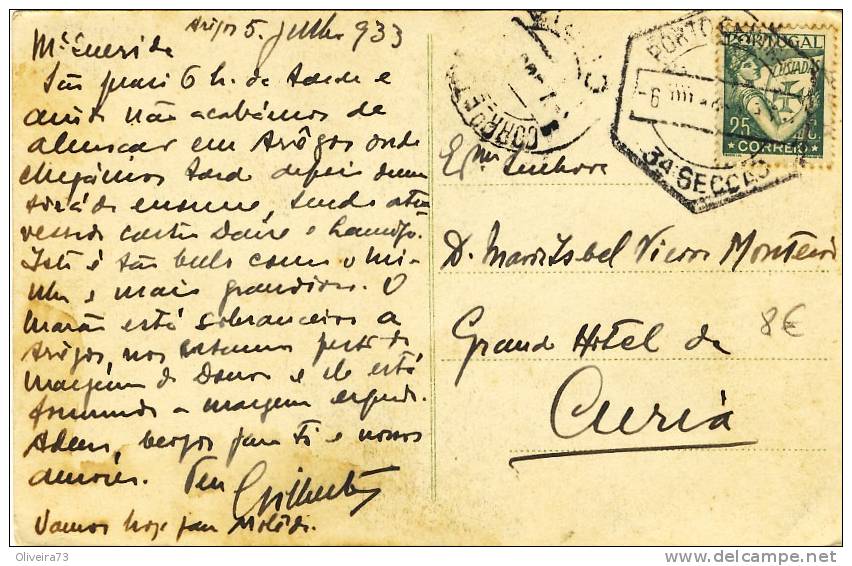 Arêgos 5. Julho 933
Mª Querida
São quasi 6 h. da tarde e
ainda não acabámos de
almoçar em Arêgos onde
chegámos tarde depois duma
enorme, sendo atra
vessada Castro Daire e Lamego.
Isto é tão belo como o Mi-
nho e mais grandioso. O
Marão está sobranceiro a
Arêgos, nos estamos perto da
margem do Douro e ele está
formando a margem esquerda.
Adeus, beijos para ti e nossos
amores. Teu Gilberto
Vamos hoje para Molêdo.
CORREIO
PORTO
-6
3ª SECÇÃO
PORTUGAL
LUSIADAS
25 C.
CORREIO
Exma Senhora
D. Maria Isabel Vieira Monteiro
Grande Hotel da
Curia
8€
Oliveira73
delcampe.net